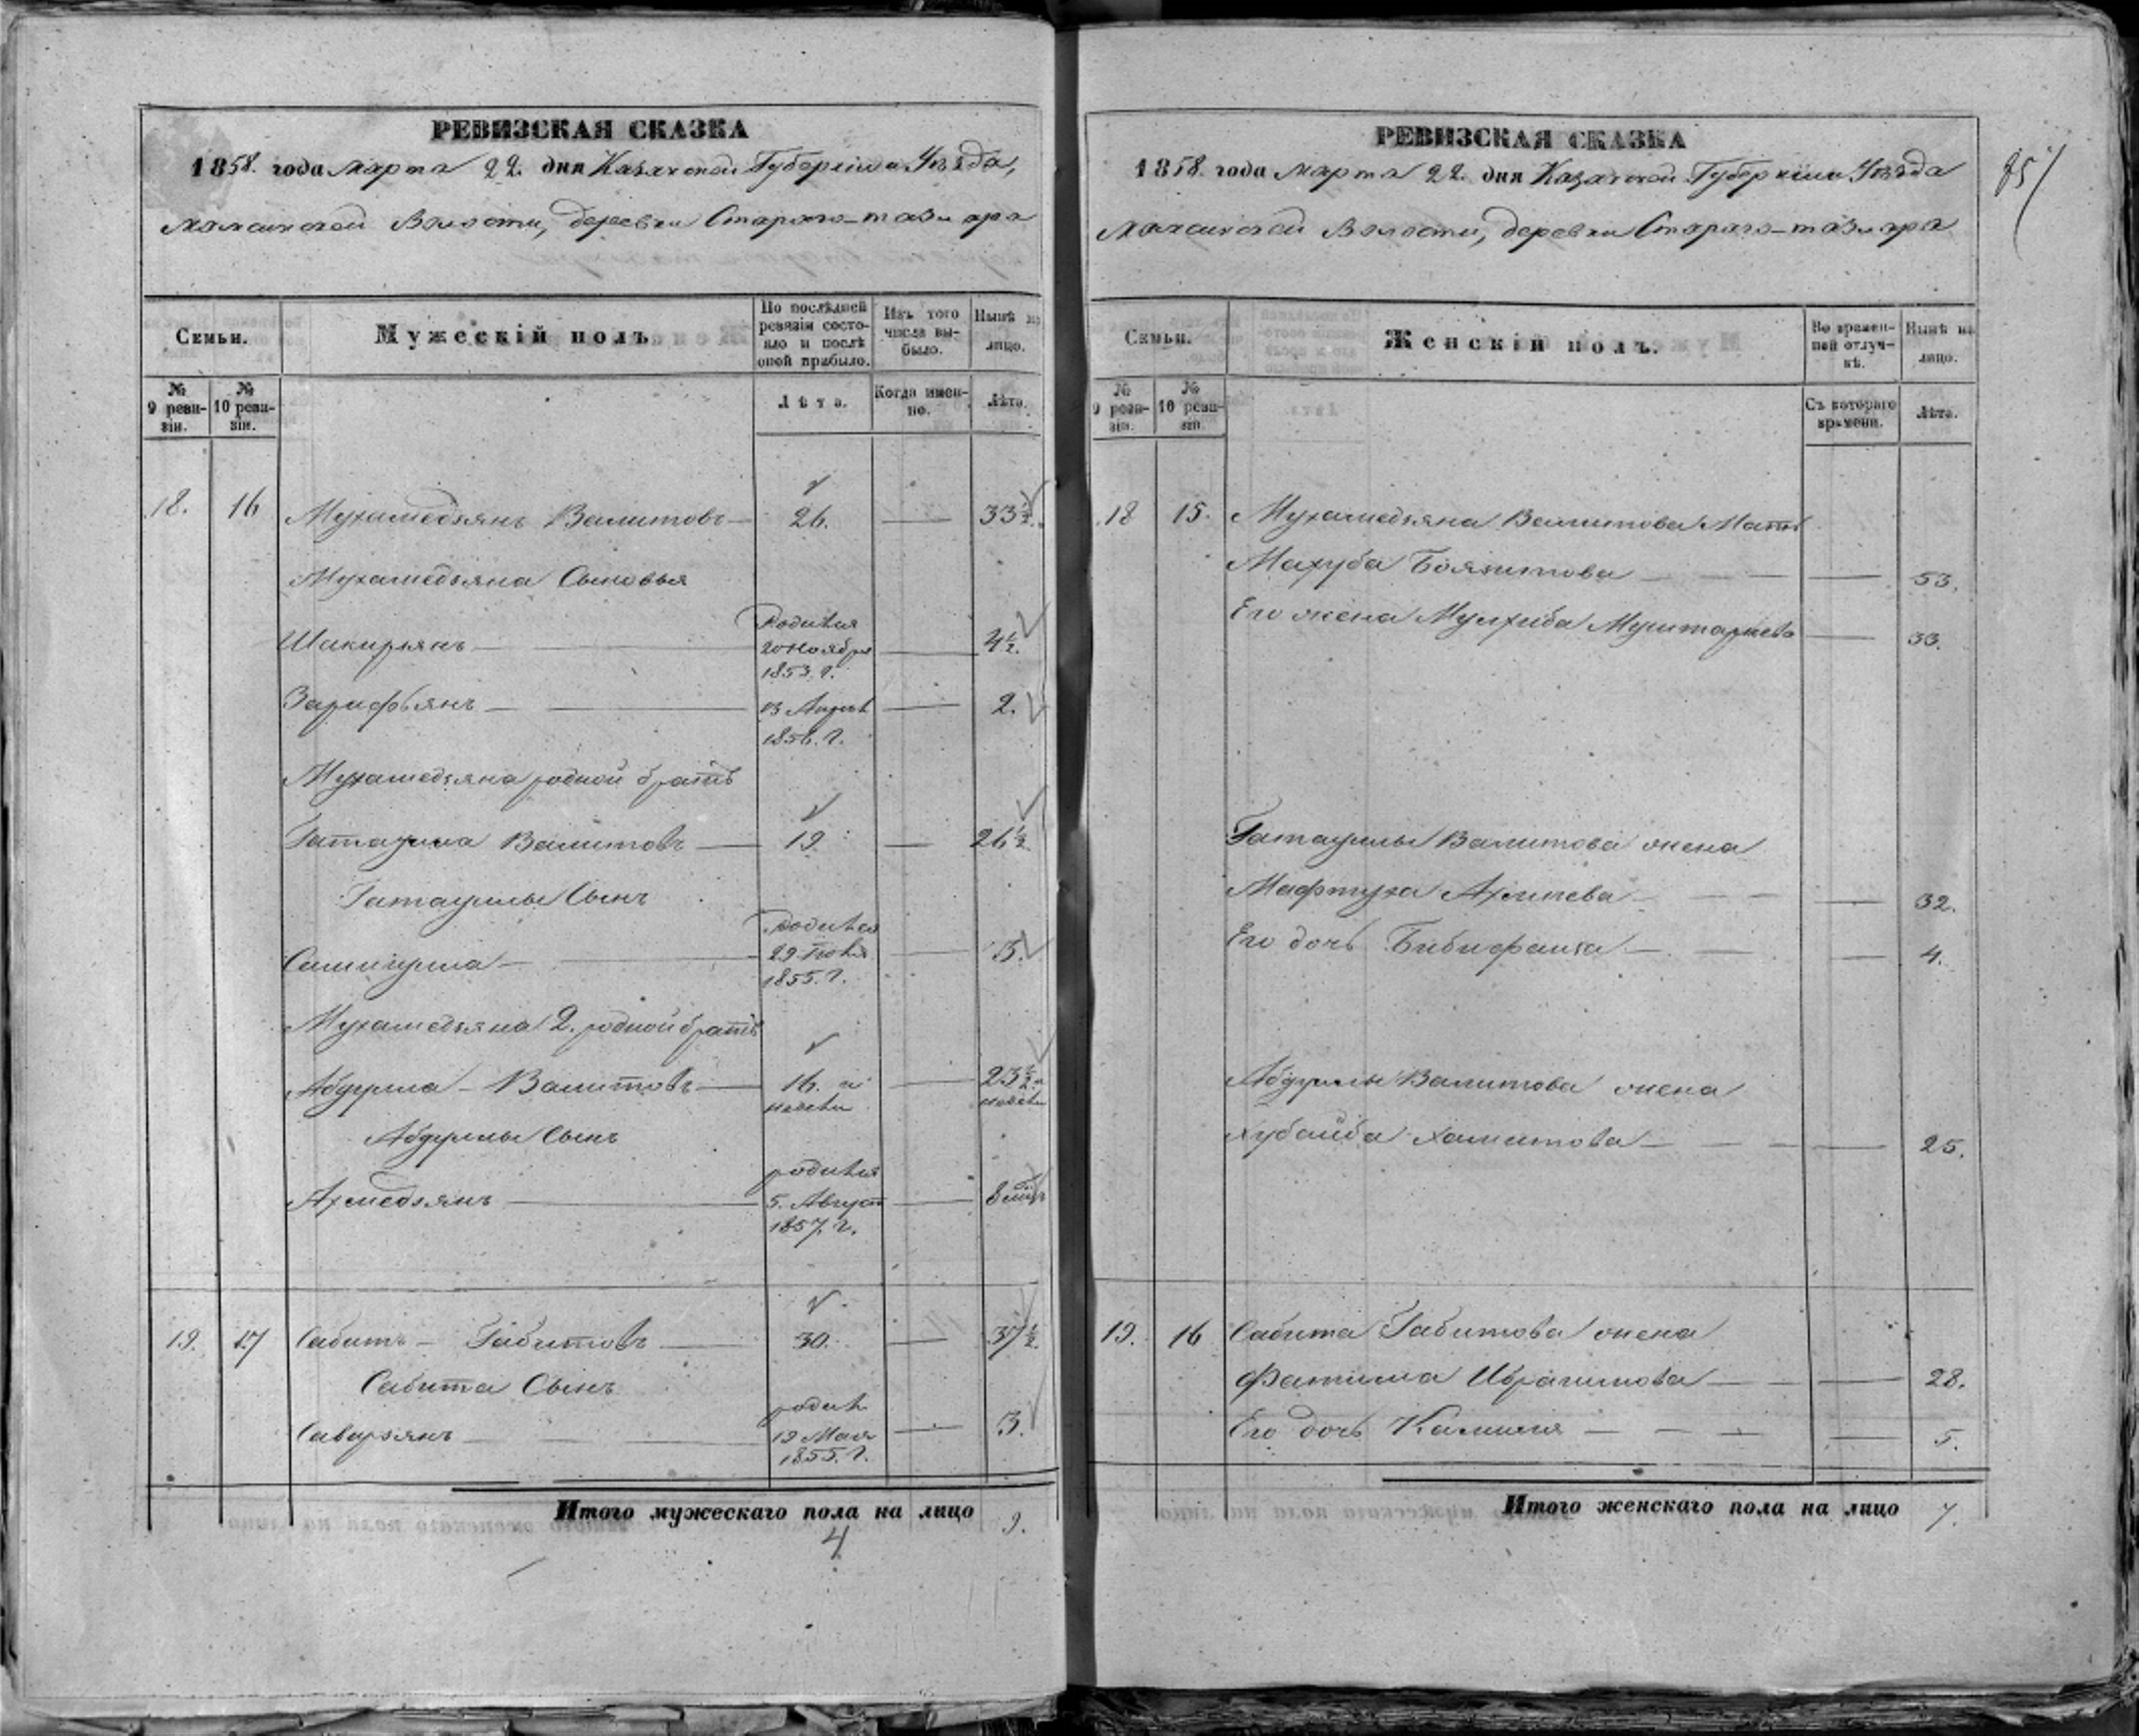 РЕВИЗСКАЯ СКАЗКА
1858. года марта 22. дня Казанской Губерніи и Уѣзда,
Волости, деревни Стараго-тазларя
Семьи.
Мужескій полъ
По послѣдней ревизіи состояло и послѣ оной прибыло.
Изъ того числа выбыло.
Нынѣ на лицо.
№ 9 ревизіи.
№ 10 ревизіи.
Лѣта.
Когда именно.
Лѣта.
18. 16 Мухамедзянъ Валитовъ — 26. — 33½.
Мухамедзяна Сыновья
Шакирзянъ — Родился 20 Ноября 1853. г. — 4½.
Зарифзянъ — 13 Апрѣл 1856. г. — 2.
Мухамедзяна родной братъ
Гатаулла Валитовъ — 19. — 26½.
Гатауллы Сынъ
Самигулла — Родился 29 1855. г. — 3.
Мухамедзяна 2. родной братъ
Абдулла — Валитовъ — 16. и — 23½
Абдуллы Сынъ
Ахмедзянъ — родился 5. Август 1857. г. — 8
19. 17 Сабитъ — Габитовъ — 30. — 37½.
Сабита Сынъ
Саварзянъ — родилс 19 Мая 1855. г. — 3.
Итого мужескаго пола на лицо 9.
4
РЕВИЗСКАЯ СКАЗКА
1858. года марта 22. дня Казанской Губерніи и Уѣзда
Волости, деревни Стараго-тазларя
Семьи.
Женскій полъ.
Во временной отлучкѣ.
Нынѣ на лицо.
№ 9 ревизіи.
№ 10 ревизіи.
Съ котораго времени.
Лѣта.
18 15. Мухамедзяна Валитова Мать
Махуба Боязитова — — 53.
Его жена — 33.
Гатауллы Валитова жена
Мафтуха — — 32.
Его дочь Бибифаиза — — 4.
Абдуллы Валитова жена
Хубайба Хамитова — — 25.
19. 16 Сабита Габитова жена
Фатима Ибрагимова — — 28.
Его дочь Камиля — — 5.
Итого женскаго пола на лицо 7.